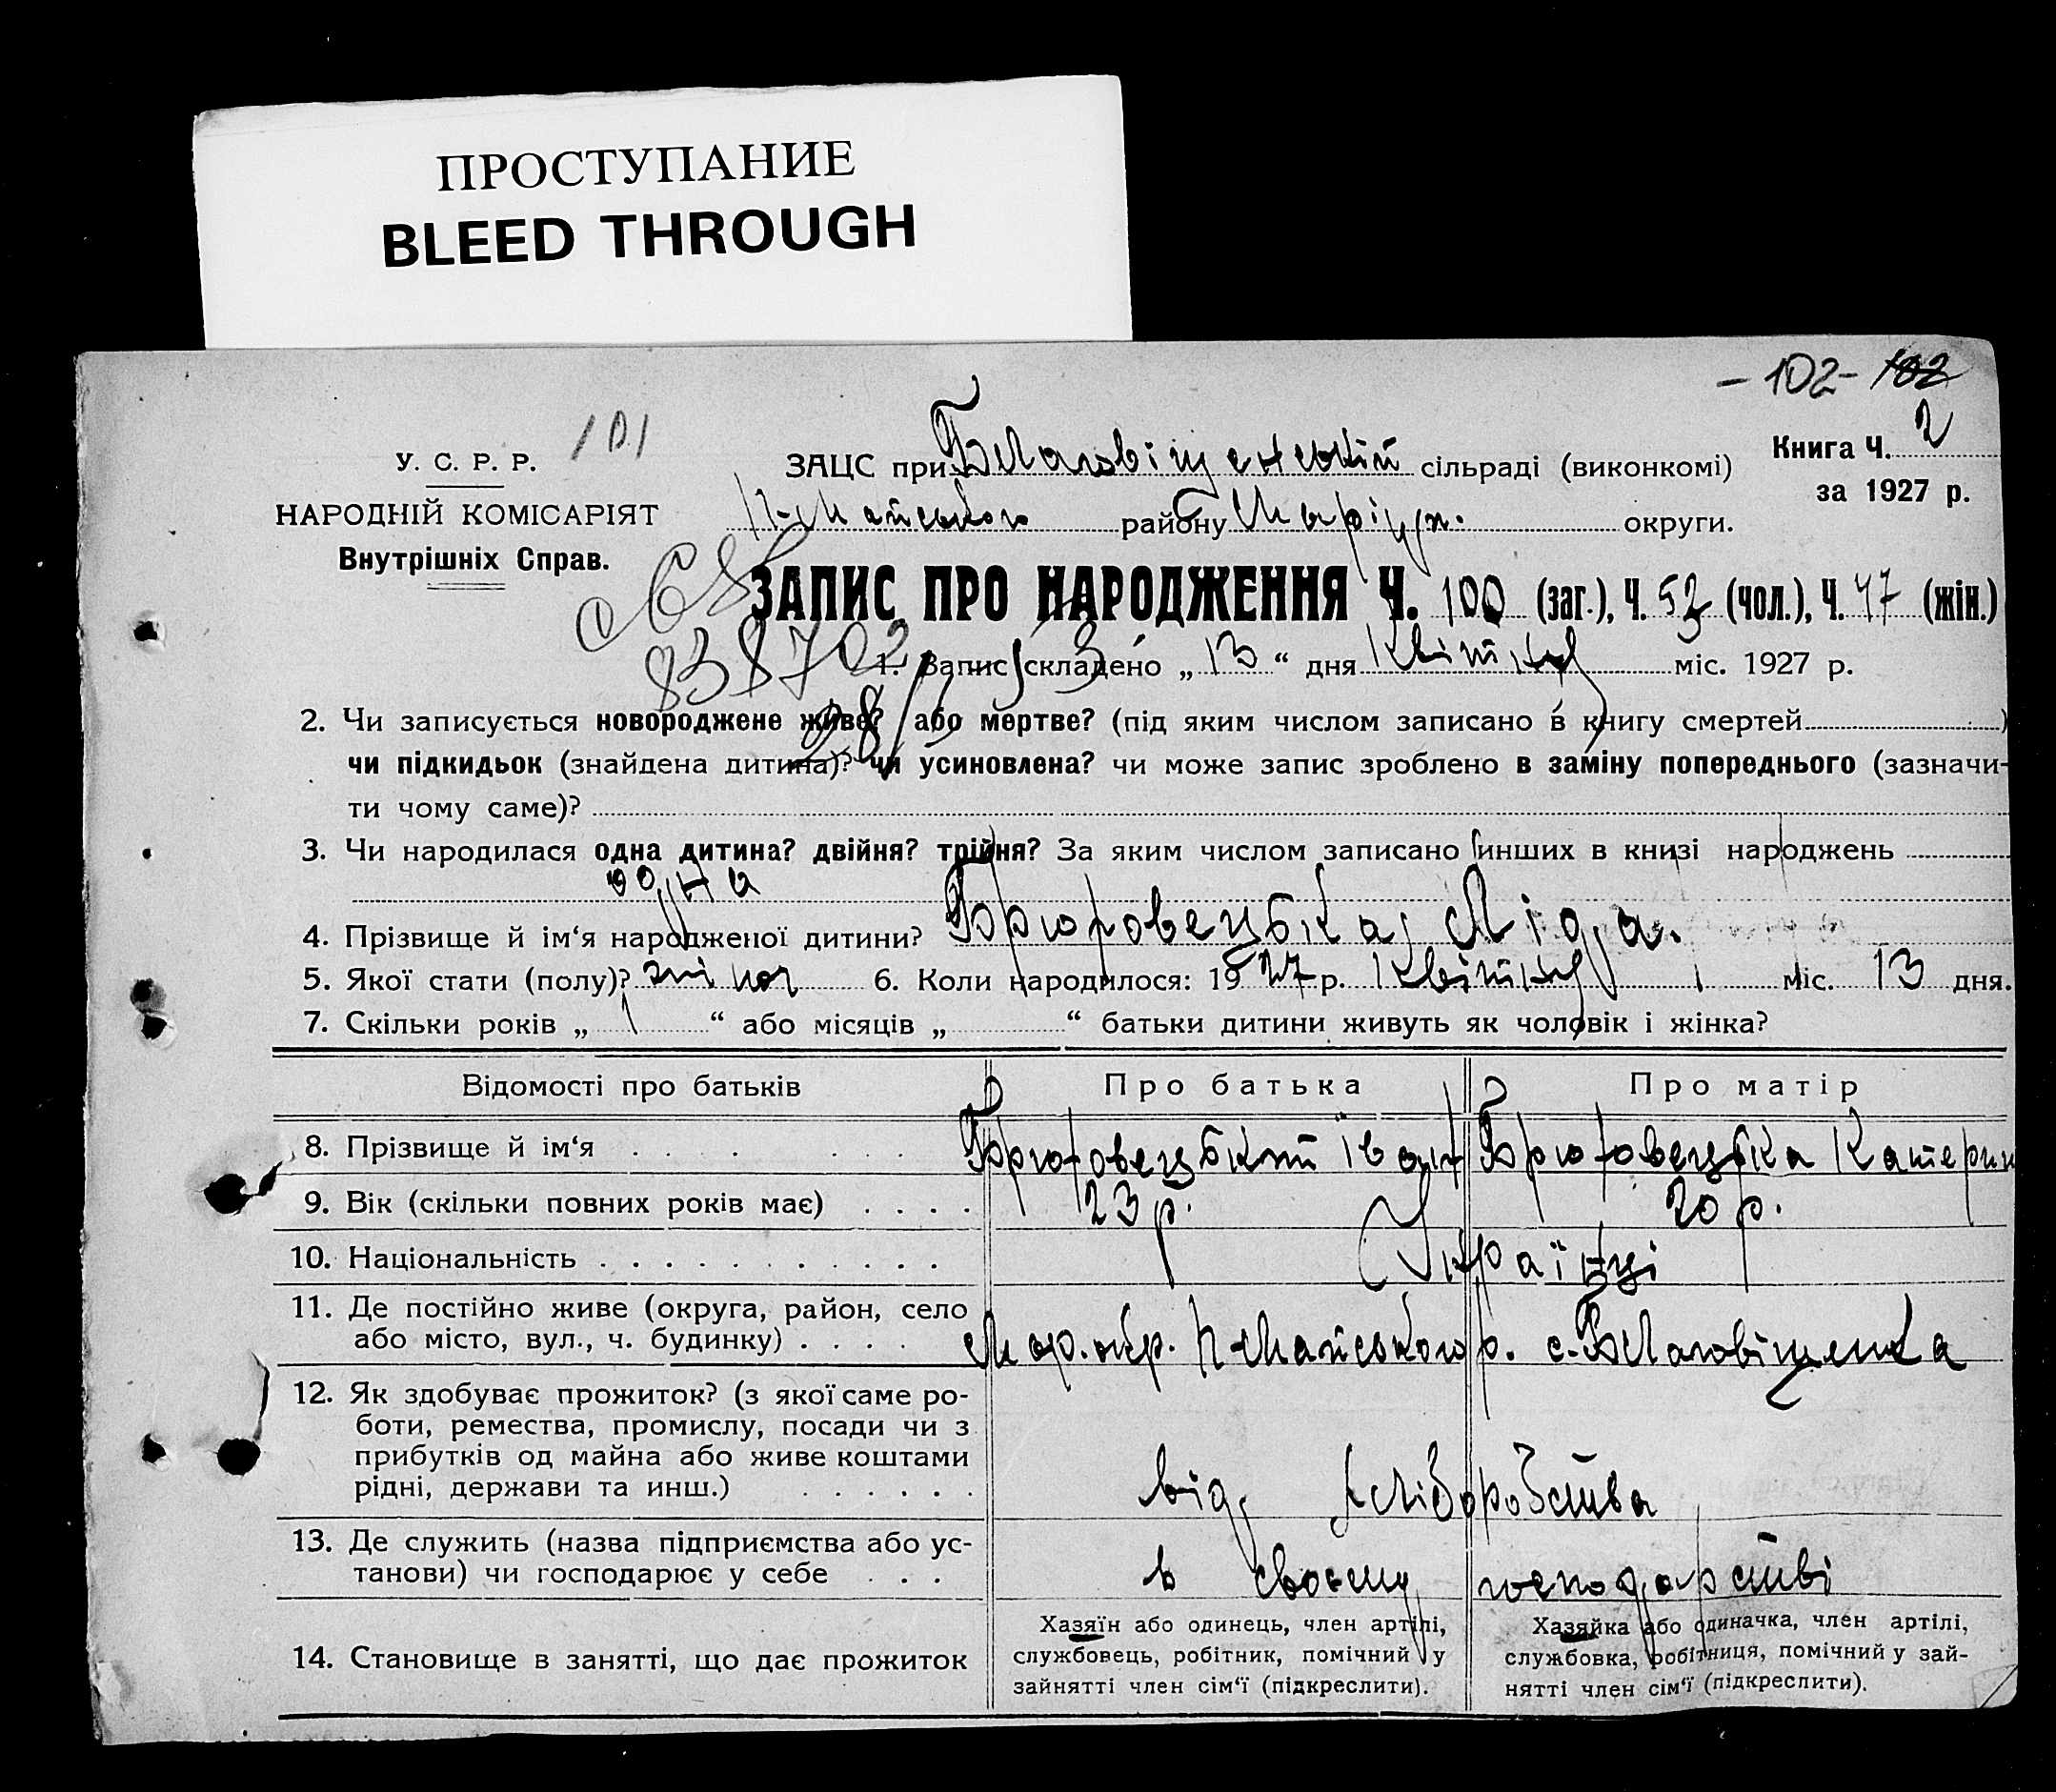 ПРОСТУПАНИЕ
BLEED THROUGH
- 102 - 102
101
У. С. Р. Р.
НАРОДНІЙ КОМІСАРІЯТ
Внутрішніх Справ.
ЗАЦС при Благовіщенській сільраді (виконкомі)
П-Майського району Маріуп. округи.
Книга Ч. 2
за 1927 р.
ЗАПИС ПРО НАРОДЖЕННЯ Ч. 100 (заг.), Ч. 53 (чол.), Ч. 47 (жін.)
838702
1. Запис складено „ 13 “ дня Квітня міс. 1927 р.
2. Чи записується новороджене живе? або мертве? (під яким числом записано в книгу смертей )
чи підкидьок (знайдена дитина)? чи усиновлена? чи може запис зроблено в заміну попереднього (зазначи-
ти чому саме)?
3. Чи народилася одна дитина? двійня? трійня? За яким числом записано инших в книзі народжень
одна
4. Прізвище й ім‘я народженої дитини? Брюровецька, Ліда.
5. Якої стати (полу)? жіноч 6. Коли народилося: 1927 р. Квітня міс. 13 дня.
7. Скільки років „ 1 “ або місяців „ “ батьки дитини живуть як чоловік і жінка?
Відомості про батьків Про батька Про матір
8. Прізвище й ім‘я . . . . . . . Брюровецький Іван Брюровецька Катерин
9. Вік (скільки повних років має) . . . . 23 р. 20 р.
10. Національність . . . . . . . . . . . Українці
11. Де постійно живе (округа, район, село
або місто, вул., ч. будинку) . . . . Мар. окр. П Майського р. с. Благовіщенка
12. Як здобуває прожиток? (з якої саме ро-
боти, ремества, промислу, посади чи з
прибутків од майна або живе коштами
рідні, держави та инш.) . . . . . . від хліборобства
13. Де служить (назва підприємства або ус-
танови) чи господарює у себе . . . в своєму господарстві
14. Становище в занятті, що дає прожиток
Хазяїн або одинець, член артілі,
службовець, робітник, помічний у
зайнятті член сім‘ї (підкреслити).
Хазяйка або одиначка, член артілі,
службовка, робітниця, помічний у зай-
нятті член сім‘ї (підкреслити).